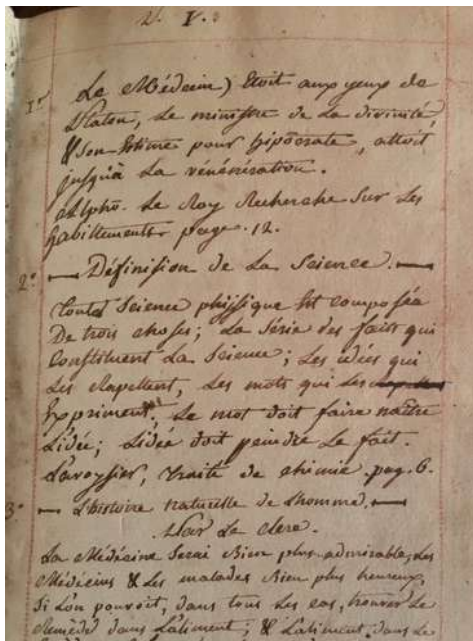 V. I.
1º Le Médecin) Etoit aux yeux de
Platon, Le ministre de La divinité,
& Son Estime pour hipocrate, alloit
jusqu'à La vénénération.
Alpho. Le Roy Recherche Sur Les
habillements page. 12.
2º — Définition de La Science. —
Toutes Science phisique Est composéa
De trois choses; La Série des faits qui
Constituent La Science; Les idées qui
Les Rapellent, Les mots qui Les
Expriment; Le mot doit faire naître
Lidée; Lidée doit peindre Le fait.
Lavoysier, Traité de chimie. pag. 6.
3º — Lhistoire naturelle de Lhomme. —
Par Le Clerc.
La Médécine Serai Bien plus admirable, Les
Médécins & Les malades Bien plus heureux,
Si L'on pouvoit, dans tous Les cas, trouver Le
Remède dans Laliment; & Laliment, dans Le